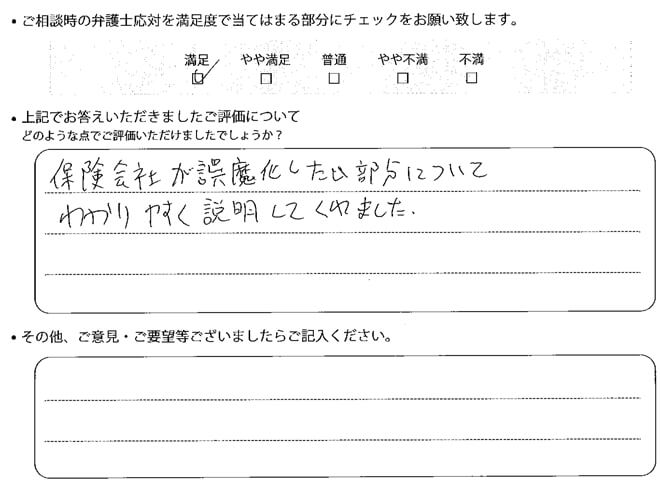 • ご相談時の弁護士応対を満足度で当てはまる部分にチェックをお願い致します。
満足 やや満足 普通 やや不満 不満
• 上記でお答えいただきましたご評価について
どのような点でご評価いただけましたでしょうか？
保険会社が誤魔化したい部分について
わかりやすく説明してくれました.
• その他、ご意見・ご要望等ございましたらご記入ください。